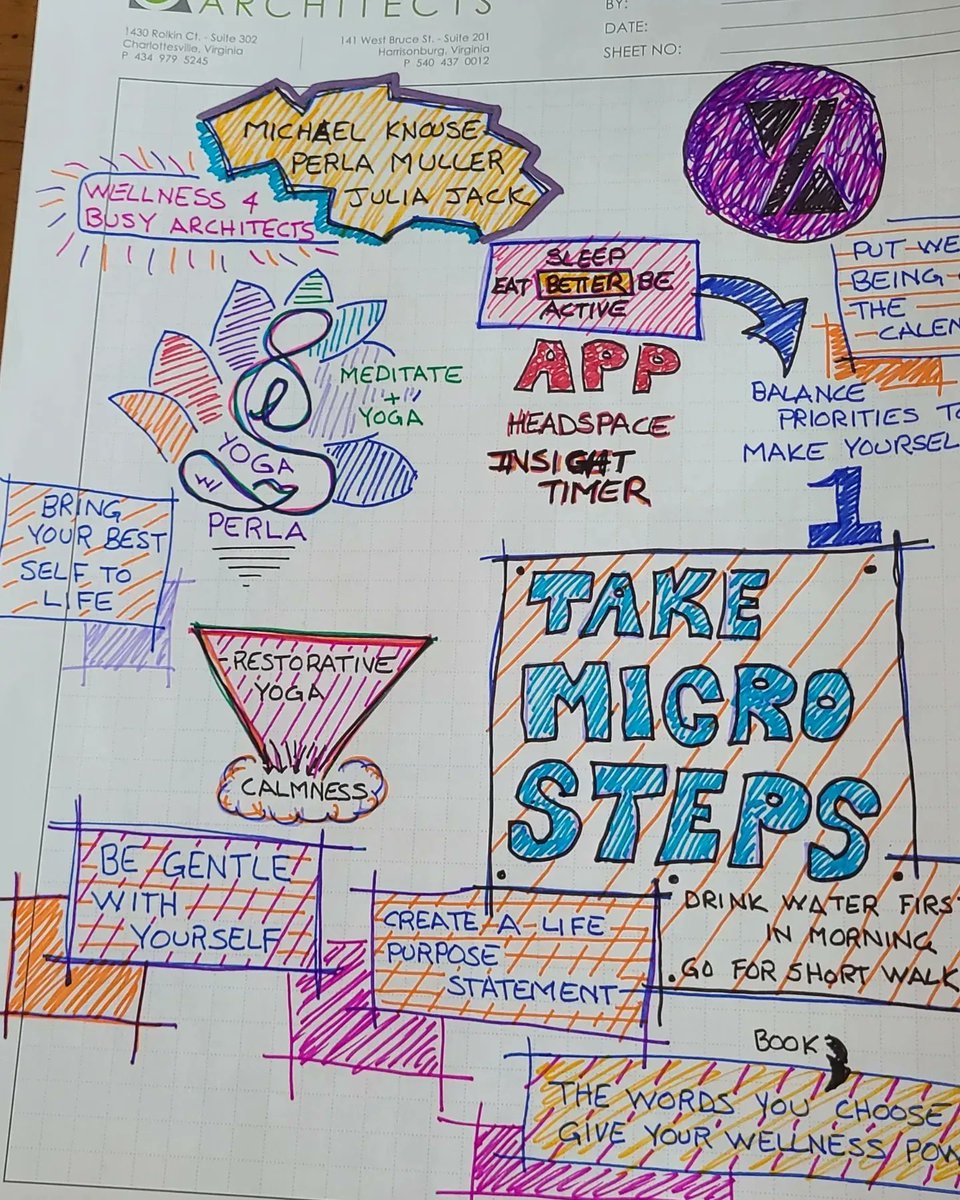 ARCHITECTS
1430 Rolkin Ct. - Suite 302
Charlottesville, Virginia
P 434 979 5245
141 West Bruce St. - Suite 201
Harrisonburg, Virginia
P 540 437 0012
BY:
DATE:
SHEET NO:
MICHAEL KNOUSE
PERLA MULLER
JULIA JACK
WELLNESS 4
BUSY ARCHITECTS
SLEEP
EAT BETTER BE
ACTIVE
PUT WE
BEING
THE
CALEN
APP
HEADSPACE
INSIGHT
TIMER
BALANCE
PRIORITIES TO
MAKE YOURSEL
1
MEDITATE
+
YOGA
YOGA
W/
PERLA
BRING
YOUR BEST
SELF TO
LIFE
TAKE
MICRO
STEPS
RESTORATIVE
YOGA
CALMNESS
BE GENTLE
WITH
YOURSELF
CREATE A LIFE
PURPOSE
STATEMENT
DRINK WATER FIRS
IN MORNING
GO FOR SHORT WALK
BOOK
THE WORDS YOU CHOOSE
GIVE YOUR WELLNESS POW